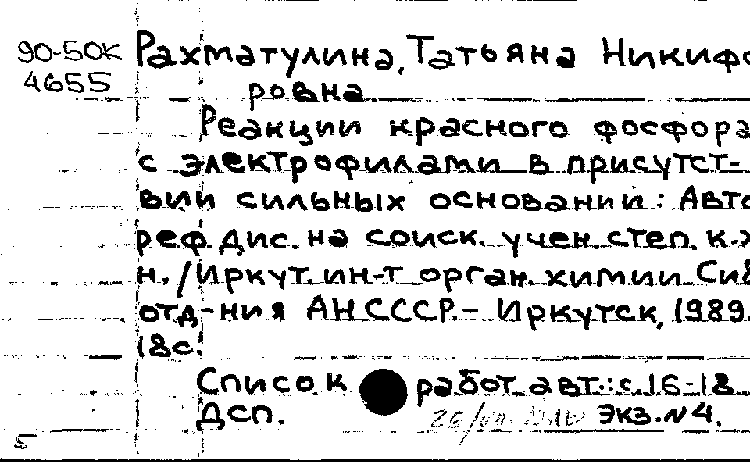 90-50К
4655
Рахматулина, Татьяна Никифо
ровна
Реакции красного фосфора
с электрофилами в присутст-
вии сильных оснований: Авто
реф. дис. на соиск. учен. степ. к.х
н. / Иркут. ин-т орган. химии Сиб
отд-ния АН СССР.- Иркутск, 1989.
18с.
Список работ авт.: с. 16-18
Дсп. экз. №4.
5